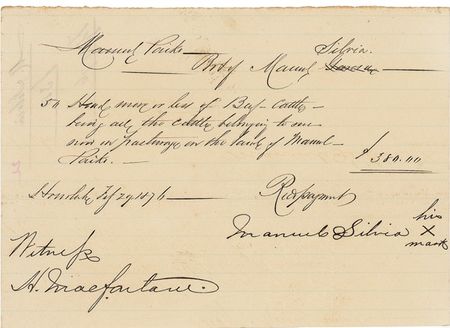 Manuel Paiko
Silvia.
Bot of Manuel
50 Head more or less of Beef Cattle –
being all the cattle belonging to me
now in pasturage on the land of Manuel
Paiko. –
$ 380.00
Honolulu Feby 29 1876
Recd payment
Manuel Silvia
his
X
mark
Witness
H. Macfarlane.